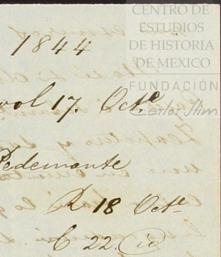 CENTRO DE
ESTUDIOS
DE HISTORIA
DE MEXICO
FUNDACIÓN
1844
ool 17. Octe
Pedemonte
R 18 Octe
C 22. id